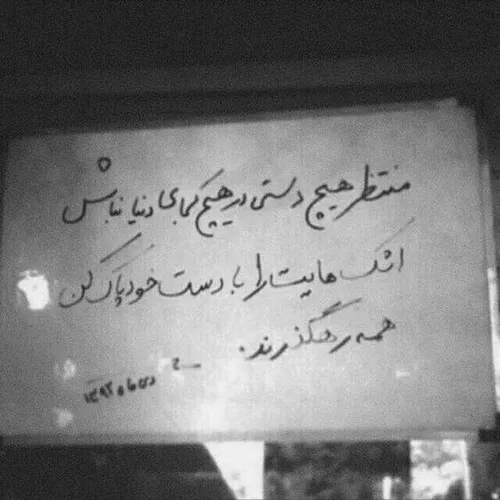 منتظر هیچ دستی در هیچ کجای دنیا نباش
اشک هایت را با دست خود پاک کن
همه رهگذرند.
دی ماه ۱۳۹۲